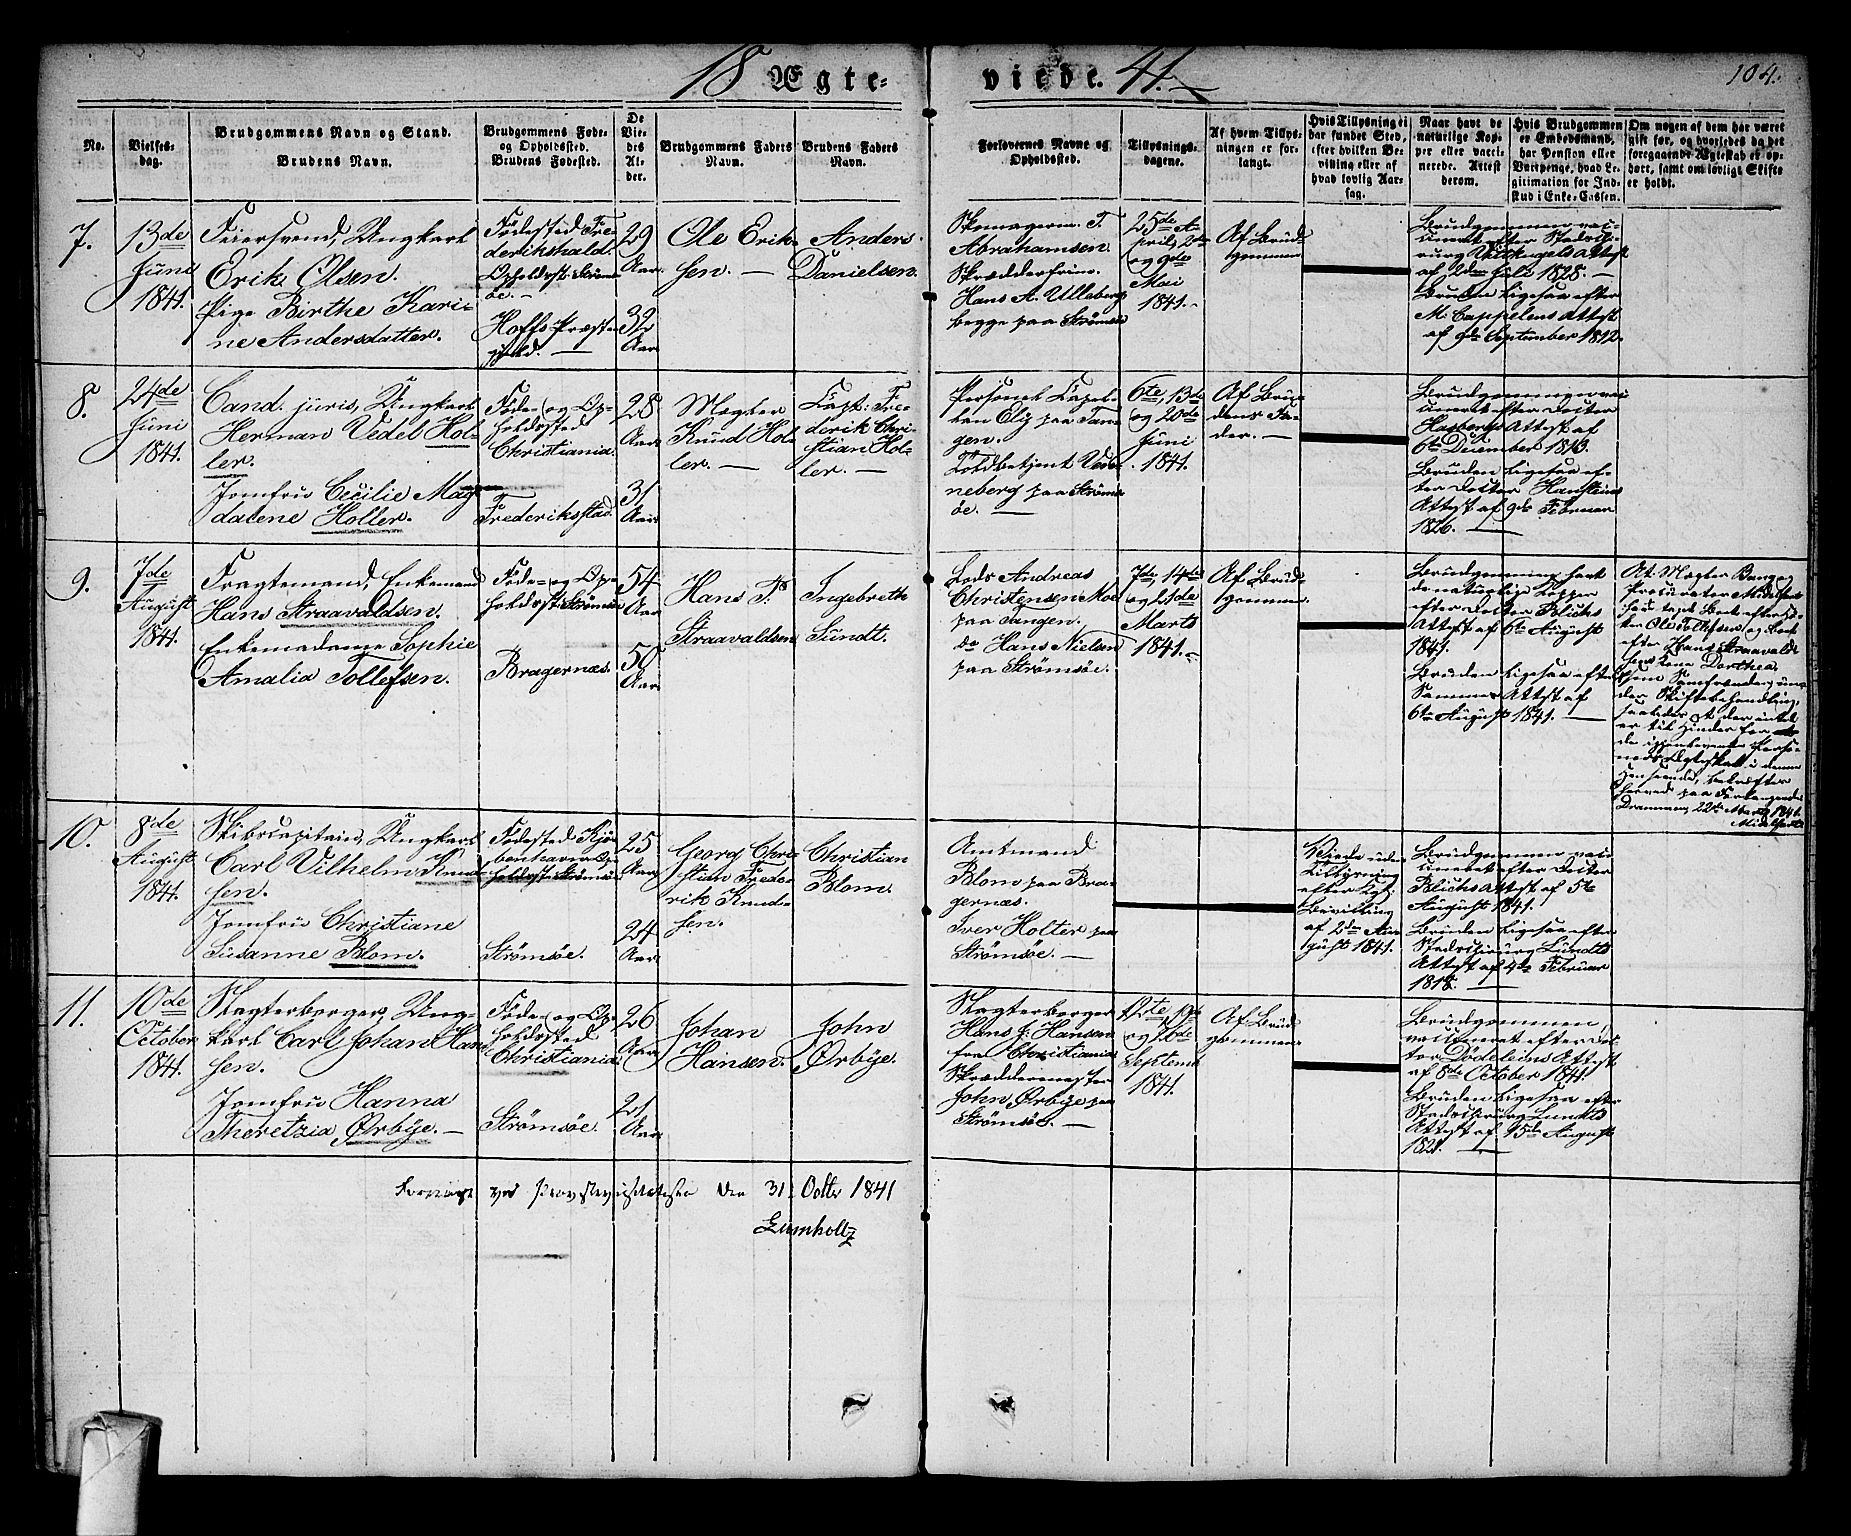 18 Ægte= viede. 41.
104.
No.
Vielses-
dag.
Brudgommens Navn og Stand.
Brudens Navn.
Brudgommens Føde-
og Opholdssted.
Brudens Fødested.
De
Vie-
des
Al-
der.
Brudgommens Faders
Navn.
Brudens Faders
Navn.
Forlovernes Navne og
Opholdssted.
Tillysnings-
dagene.
Af hvem Tillys-
ningen er for-
langt.
Hvis Tillysning ei
har fundet Sted,
efter hvilken Be-
villing eller af
hvad lovlig Aar-
sag.
Naar havt de
naturlige Kop-
per eller vacci-
nerede. Attest
derom.
Hvis Brudgommen
er Embedsmand,
har Pension eller
Vartpenge, hvad Le-
gitimation for Ind-
skud i Enke-Cassen.
Om nogen af dem har været
gift før, og hvorledes og det
foregaaende Ægteskab er op-
hørt, samt om lovligt Skifte
er holdt.
7.
13de
Juni
1841.
Feiersvend, Ungkarl
Erik Olsen.
Pige Birthe Kari-
ne Andersdatter.
Fødested Fre-
derikshald.
Opholdsst: Strøms-
øe. —
Hoffs Præste-
gjeld. —
29
Aar.
39
Aar
Ole Erik-
sen. —
Anders
Danielsen.
Abrahamsen.
Hans A. Ulleberg
begge paa Strømsøe
25de A-
pril, 2den
og 9de
Mai
1841. -
Af Brud-
gommen
Brudgommen vac-
cineret efter Stadsci-
rurg Attest
af 2den Juli 1828. —
Bruden ligesaa efter
M. Cappelens Attest
af 9de September 1812.
8.
24de
Juni
1841.
Cand. juris, Ungkarl
Herman Vedel Hol-
ler.
Jomfru Cecilie Mag-
dalene Holler.
Føde- og Op-
holdssted
Christiania.
Frederiksstad.
28
Aar.
31
Aar
Mægler
Knud Hol-
ler. —
Capt: Fre-
derik Chri-
stian Hol-
ler. —
Personel Capel-
lan paa Tan-
gen.
Toldbetjent
neberg paa Strøms-
øe. —
6te, 13de
og 20de
Juni
1841.
Af Bru-
dens Fa-
der. —
Brudgommen vac-
cineret efter Doctor
Attest af
6te December 1813.
Bruden ligesaa ef-
ter Doctor Hansteens
Attest af 9de Februar
1826. —
9.
7de
August
1841.
Fragtemand, Enkemand
Hans Straavaldsen.
Enkemadame Sophie
Amalia Tollefsen.
Føde- og Op-
holdsst: Strømsøe
Bragernæs.
54
Aar
50
Aar
Hans
Straavaldsen
Ingebreth
Sundt.
Lods Andreas
Christensen Moe
paa Tangen.
do Hans Nielsen
paa Strømsøe.
7de, 14de
og 21de
Marts
1841. -
Af Brud-
gommen
Brudgommen havt
de naturlige Kopper
efter Doctor Blichs
Attest af 6te August
1841.
Bruden ligesaa efter
Sammes Attest af
6te August 1841. —
At Mægler Bang og
Procurator
ter Ole Tollefsen, og Boet
efter Hans Straavald-
sens Kone Dorthea,
der Skiftebehandling,
er til Hinder for
herved paa Forlangende
Drammen, 22de Marts 1841.
10.
8de
August
1841.
Skibscapitain, Ungkarl
Carl Vilhelm Knud-
sen.
Jomfru Christiane
Susanne Blom.
Fødested Kjø-
benhavn Op-
holdsst: Strømsøe
Strømsøe.
25
Aar
24
Aar
Georg Chri-
stian Frede-
rik Knud-
sen.
Christian
Blom.
Amtmand
Blom paa Bra-
gernæs.
Iver Holter paa
Strømsøe. —
Viede uden
Tillysning
efter Kgl:
Bevilling
af 2den Au-
gust 1841.
Brudgommen vac-
cineret efter Doctor
Blichs Attest af 5te
August 1841.
Bruden ligesaa efter
Stadscirurg Lundts
Attest af 4de Februar
1818. —
11.
10de
October
1841.
Slagterborger, Ung-
karl Carl Johan Han-
sen.
Jomfru Hanna
Theretzia Ørbye. —
Føde- og Op-
holdssted
Christiania
Strømsøe.
26
Aar
21
Aar
Johan
Hansen.
John
Ørbye.
Slagterborger
Hans J. Hansen
fra Christiania
Skræddermester
John Ørbye paa
Strømsøe. —
12te, 19de
og 26de
Septemb
1841.
Af Brud-
gommen
Brudgommen
vaccineret efter Doc-
tor Dödeleins Attest
af 8de October 1841.
Bruden ligesaa efter
Stadscirurg Lundts
Attest af 15de August
1821. —
Forevist ved Provstevisitatsen den 31 Octbr 1841
Lumholtz